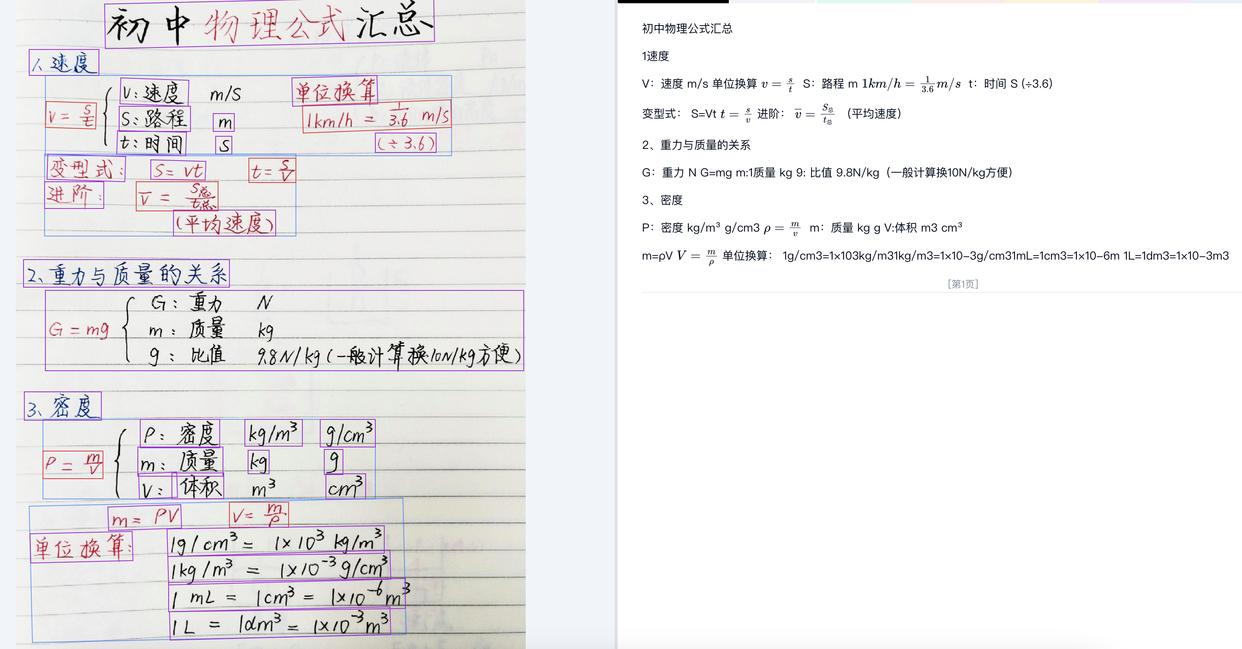 初中物理公式汇总
1、速度
v = s/t { V：速度 m/s 单位换算
S：路程 m 1km/h = 1/3.6 m/s
t：时间 s (÷3.6)
变型式： S = vt t = s/v
进阶： v̄ = s总/t总
(平均速度)
2、重力与质量的关系
G = mg { G：重力 N
m：质量 kg
g：比值 9.8N/kg (一般计算换10N/kg方便)
3、密度
ρ = m/V { ρ：密度 kg/m³ g/cm³
m：质量 kg g
V：体积 m³ cm³
m = ρV V = m/ρ
单位换算： 1g/cm³ = 1×10³ kg/m³
1kg/m³ = 1×10⁻³ g/cm³
1 mL = 1cm³ = 1×10⁻⁶ m³
1L = 1dm³ = 1×10⁻³ m³
初中物理公式汇总
1速度
V：速度 m/s 单位换算 v = s/t S：路程 m 1km/h = 1/3.6 m/s t：时间 S (÷3.6)
变型式： S=Vt t = s/v 进阶： v̄ = S总/t总 （平均速度）
2、重力与质量的关系
G：重力 N G=mg m:1质量 kg 9: 比值 9.8N/kg（一般计算换10N/kg方便）
3、密度
P：密度 kg/m³ g/cm3 ρ = m/v m：质量 kg g V:体积 m3 cm³
m=ρV V = m/ρ 单位换算： 1g/cm3=1×103kg/m31kg/m3=1×10−3g/cm31mL=1cm3=1×10−6m 1L=1dm3=1×10−3m3
[第1页]